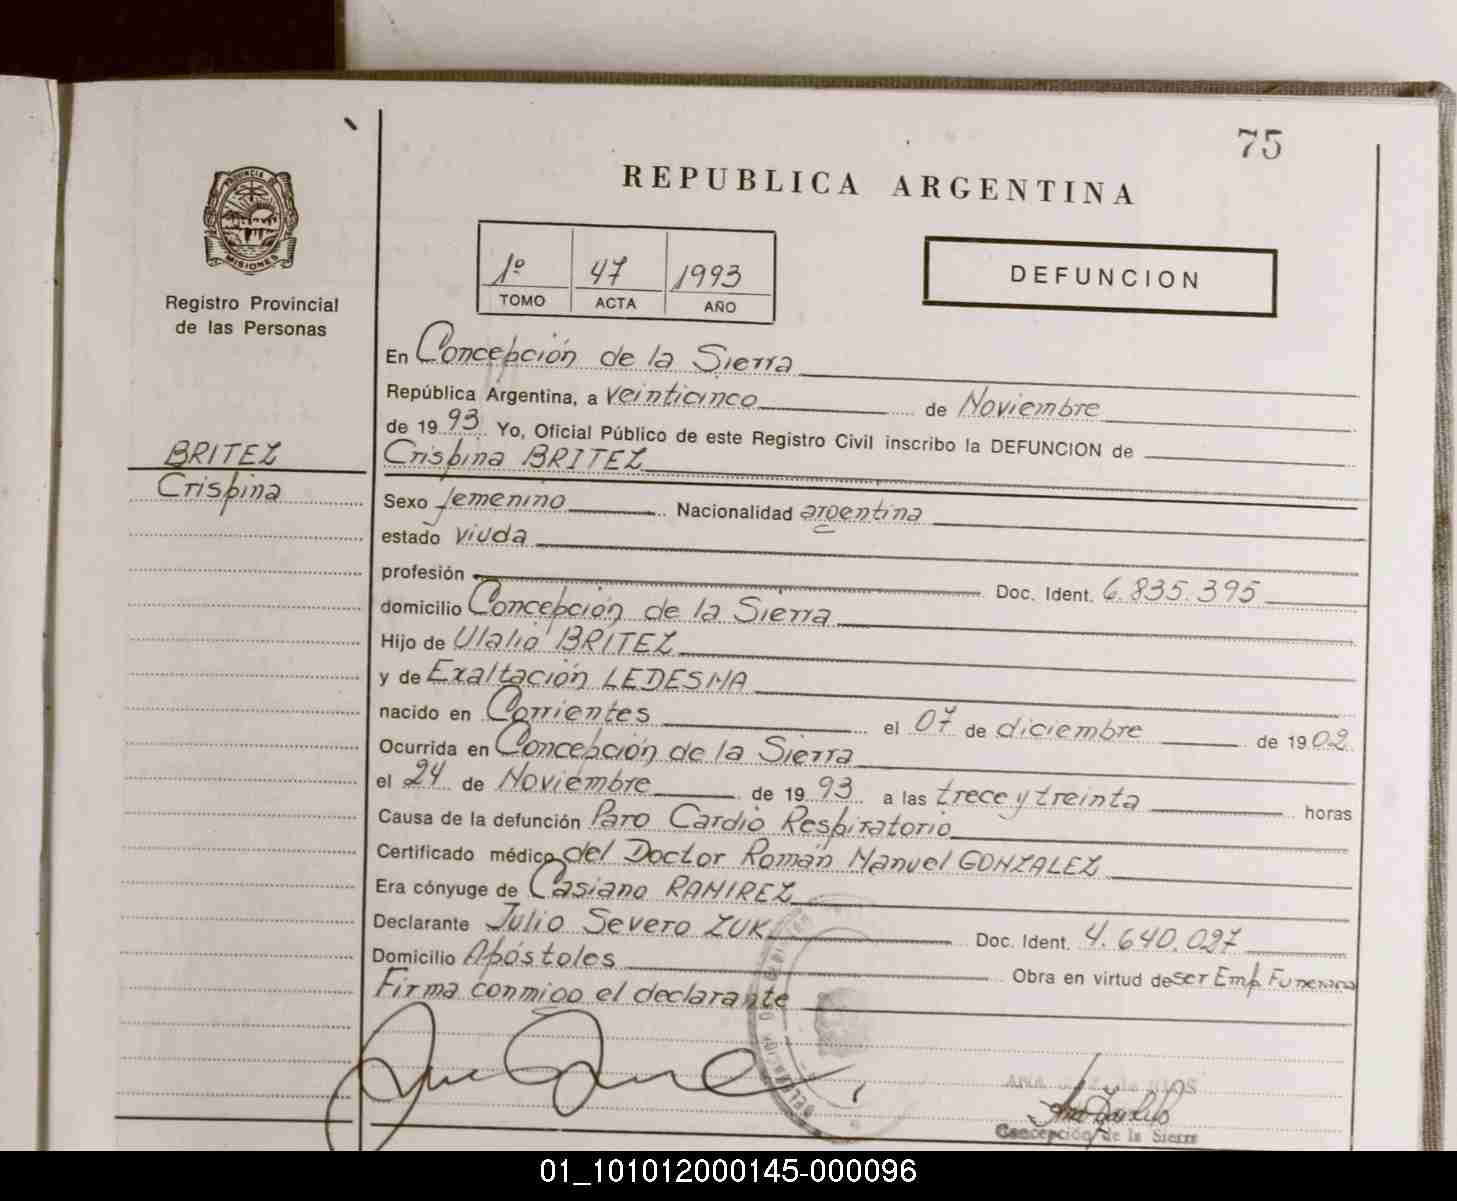 75
PROVINCIA DE
MISIONES
Registro Provincial
de las Personas
REPUBLICA ARGENTINA
1º 47 1993
TOMO ACTA AÑO
DEFUNCION
BRITEZ
Crispina
En Concepción de la Sierra
República Argentina, a veinticinco de Noviembre
de 1993 Yo, Oficial Público de este Registro Civil inscribo la DEFUNCION de
Crispina BRITEZ
Sexo femenino Nacionalidad argentina
estado viuda
profesión Doc. Ident. 6.835.395
domicilio Concepción de la Sierra
Hijo de Ulalio BRITEZ
y de Exaltación LEDESMA
nacido en Corrientes el 07 de diciembre de 1902
Ocurrida en Concepción de la Sierra
el 24 de Noviembre de 1993 a las trece y treinta horas
Causa de la defunción Paro Cardio Respiratorio
Certificado médico del Doctor Román Manuel GONZALEZ
Era cónyuge de Casiano RAMIREZ
Declarante Julio Severo ZUK Doc. Ident. 4.640.027
Domicilio Apóstoles Obra en virtud de ser Emp. Funeraria
Firma conmigo el declarante
Concepción de la Sierra
01_101012000145-000096